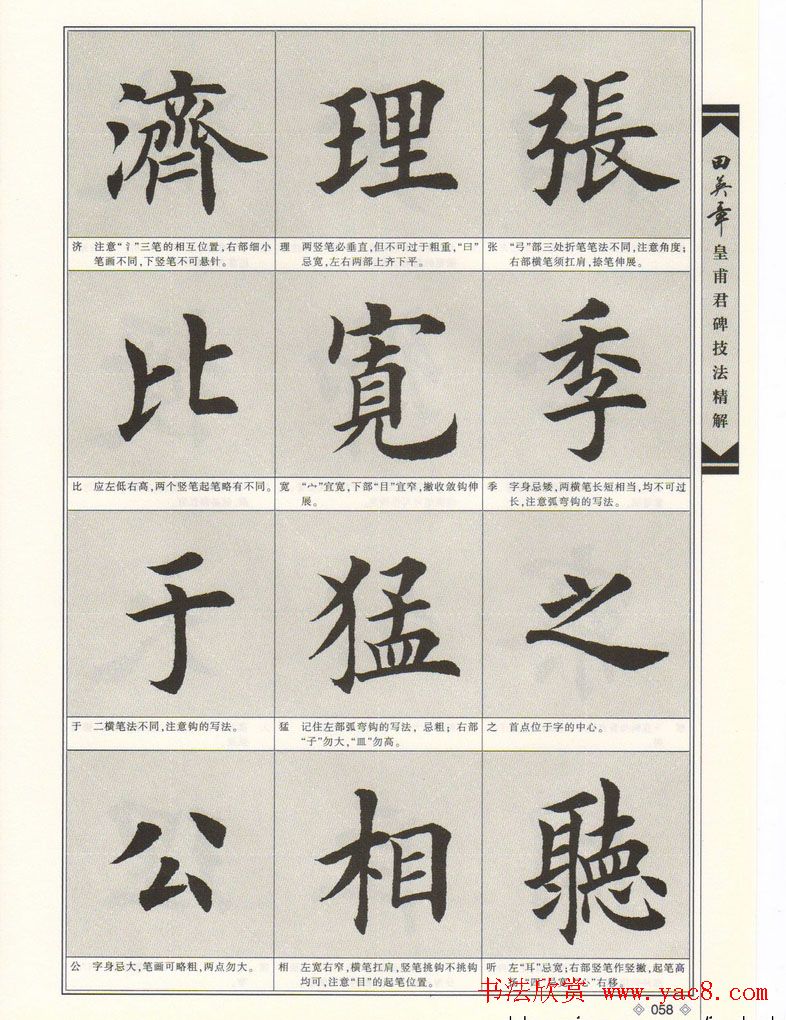 濟
理
張
济 注意“氵”三笔的相互位置，右部细小
笔画不同，下竖笔不可悬针。
理 两竖笔必垂直，但不可过于粗重，“曰”
忌宽，左右两部上齐下平。
张 “弓”部三处折笔笔法不同，注意角度；
右部横笔须扛肩，捺笔伸展。
比
寬
季
比 应左低右高，两个竖笔起笔略有不同。
宽 “宀”宜宽，下部“目”宜窄，撇收敛钩伸
展。
季 字身忌矮，两横笔长短相当，均不可过
长，注意弧弯钩的写法。
于
猛
之
于 二横笔法不同，注意钩的写法。
猛 记住左部弧弯钩的写法，忌粗；右部
“子”勿大，“皿”勿高。
之 首点位于字的中心。
公
相
聽
公 字身忌大，笔画可略粗，两点勿大。
相 左宽右窄，横笔扛肩，竖笔挑钩不挑钩
均可，注意“目”的起笔位置。
听 左“耳”忌宽；右部竖笔作竖撇，起笔高
“四”忌宽，“心”右移。
田英章
皇甫君碑技法精解
书法欣赏 www.yac8.com
058